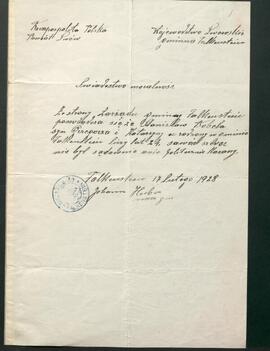 Rzeczpospolita Polska
Powiat Lwów
Województwo Lwowskie
Gmina Falkenstein
Świadectwo moralności
Ze strony Zarządu gminy Falkenstein
poświadcza się że Stanisław
syn Grzegorza i Katarzyny urodzony w gminie
Falkenstein liczy lat 24, zawód
nie był sądownie ani policyjnie karany
Falkenstein 17 Lutego 1928
Johann Huber